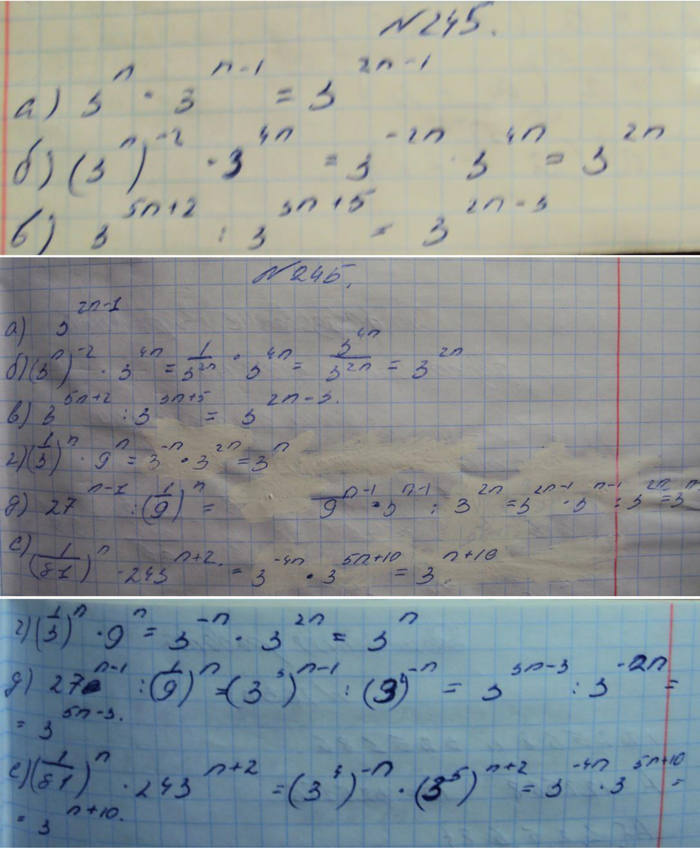 №245.
а) 3^n · 3^{n-1} = 3^{2n-1}
б) (3^n)^{-2} · 3^{4n} = 3^{-2n} · 3^{4n} = 3^{2n}
в) 3^{5n+2} : 3^{3n+5} = 3^{2n-3}
№245.
а) 3^{2n-1}
б) (3^n)^{-2} · 3^{4n} = \frac{1}{3^{2n}} · 3^{4n} = \frac{3^{4n}}{3^{2n}} = 3^{2n}
в) 3^{5n+2} : 3^{3n+5} = 3^{2n-3}.
г) (\frac{1}{3})^n · 9^n = 3^{-n} · 3^{2n} = 3^n
д) 27^{n-1} : (\frac{1}{9})^n = 9^{n-1} · 3^{n-1} : 3^{2n} = 3^{2n-1} · 3^{n-1} : 3^{2n} = 3^n
е) (\frac{1}{81})^n · 243^{n+2} = 3^{-4n} · 3^{5n+10} = 3^{n+10}.
г) (\frac{1}{3})^n · 9^n = 3^{-n} · 3^{2n} = 3^n
д) 27^{n-1} : (\frac{1}{9})^n = (3^3)^{n-1} : (3)^{-n} = 3^{3n-3} : 3^{-2n} =
= 3^{5n-3}.
е) (\frac{1}{81})^n · 243^{n+2} = (3^4)^{-n} · (3^5)^{n+2} = 3^{-4n} · 3^{5n+10} =
= 3^{n+10}.